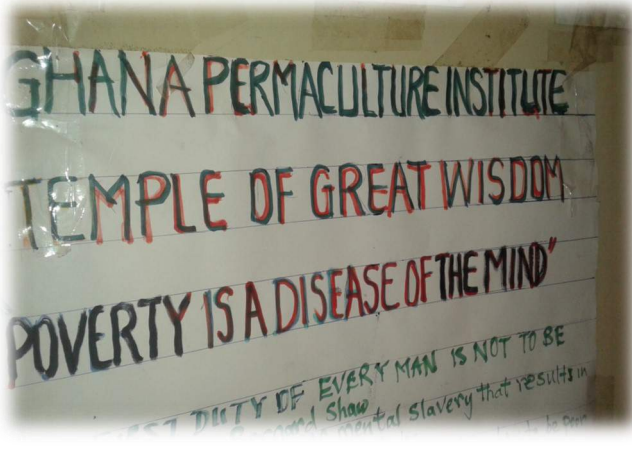 GHANA PERMACULTURE INSTITUTE
TEMPLE OF GREAT WISDOM
POVERTY IS A DISEASE OF THE MIND"
DUTY OF EVERY MAN IS NOT TO BE
Shaw
mental slavery that results in
to be